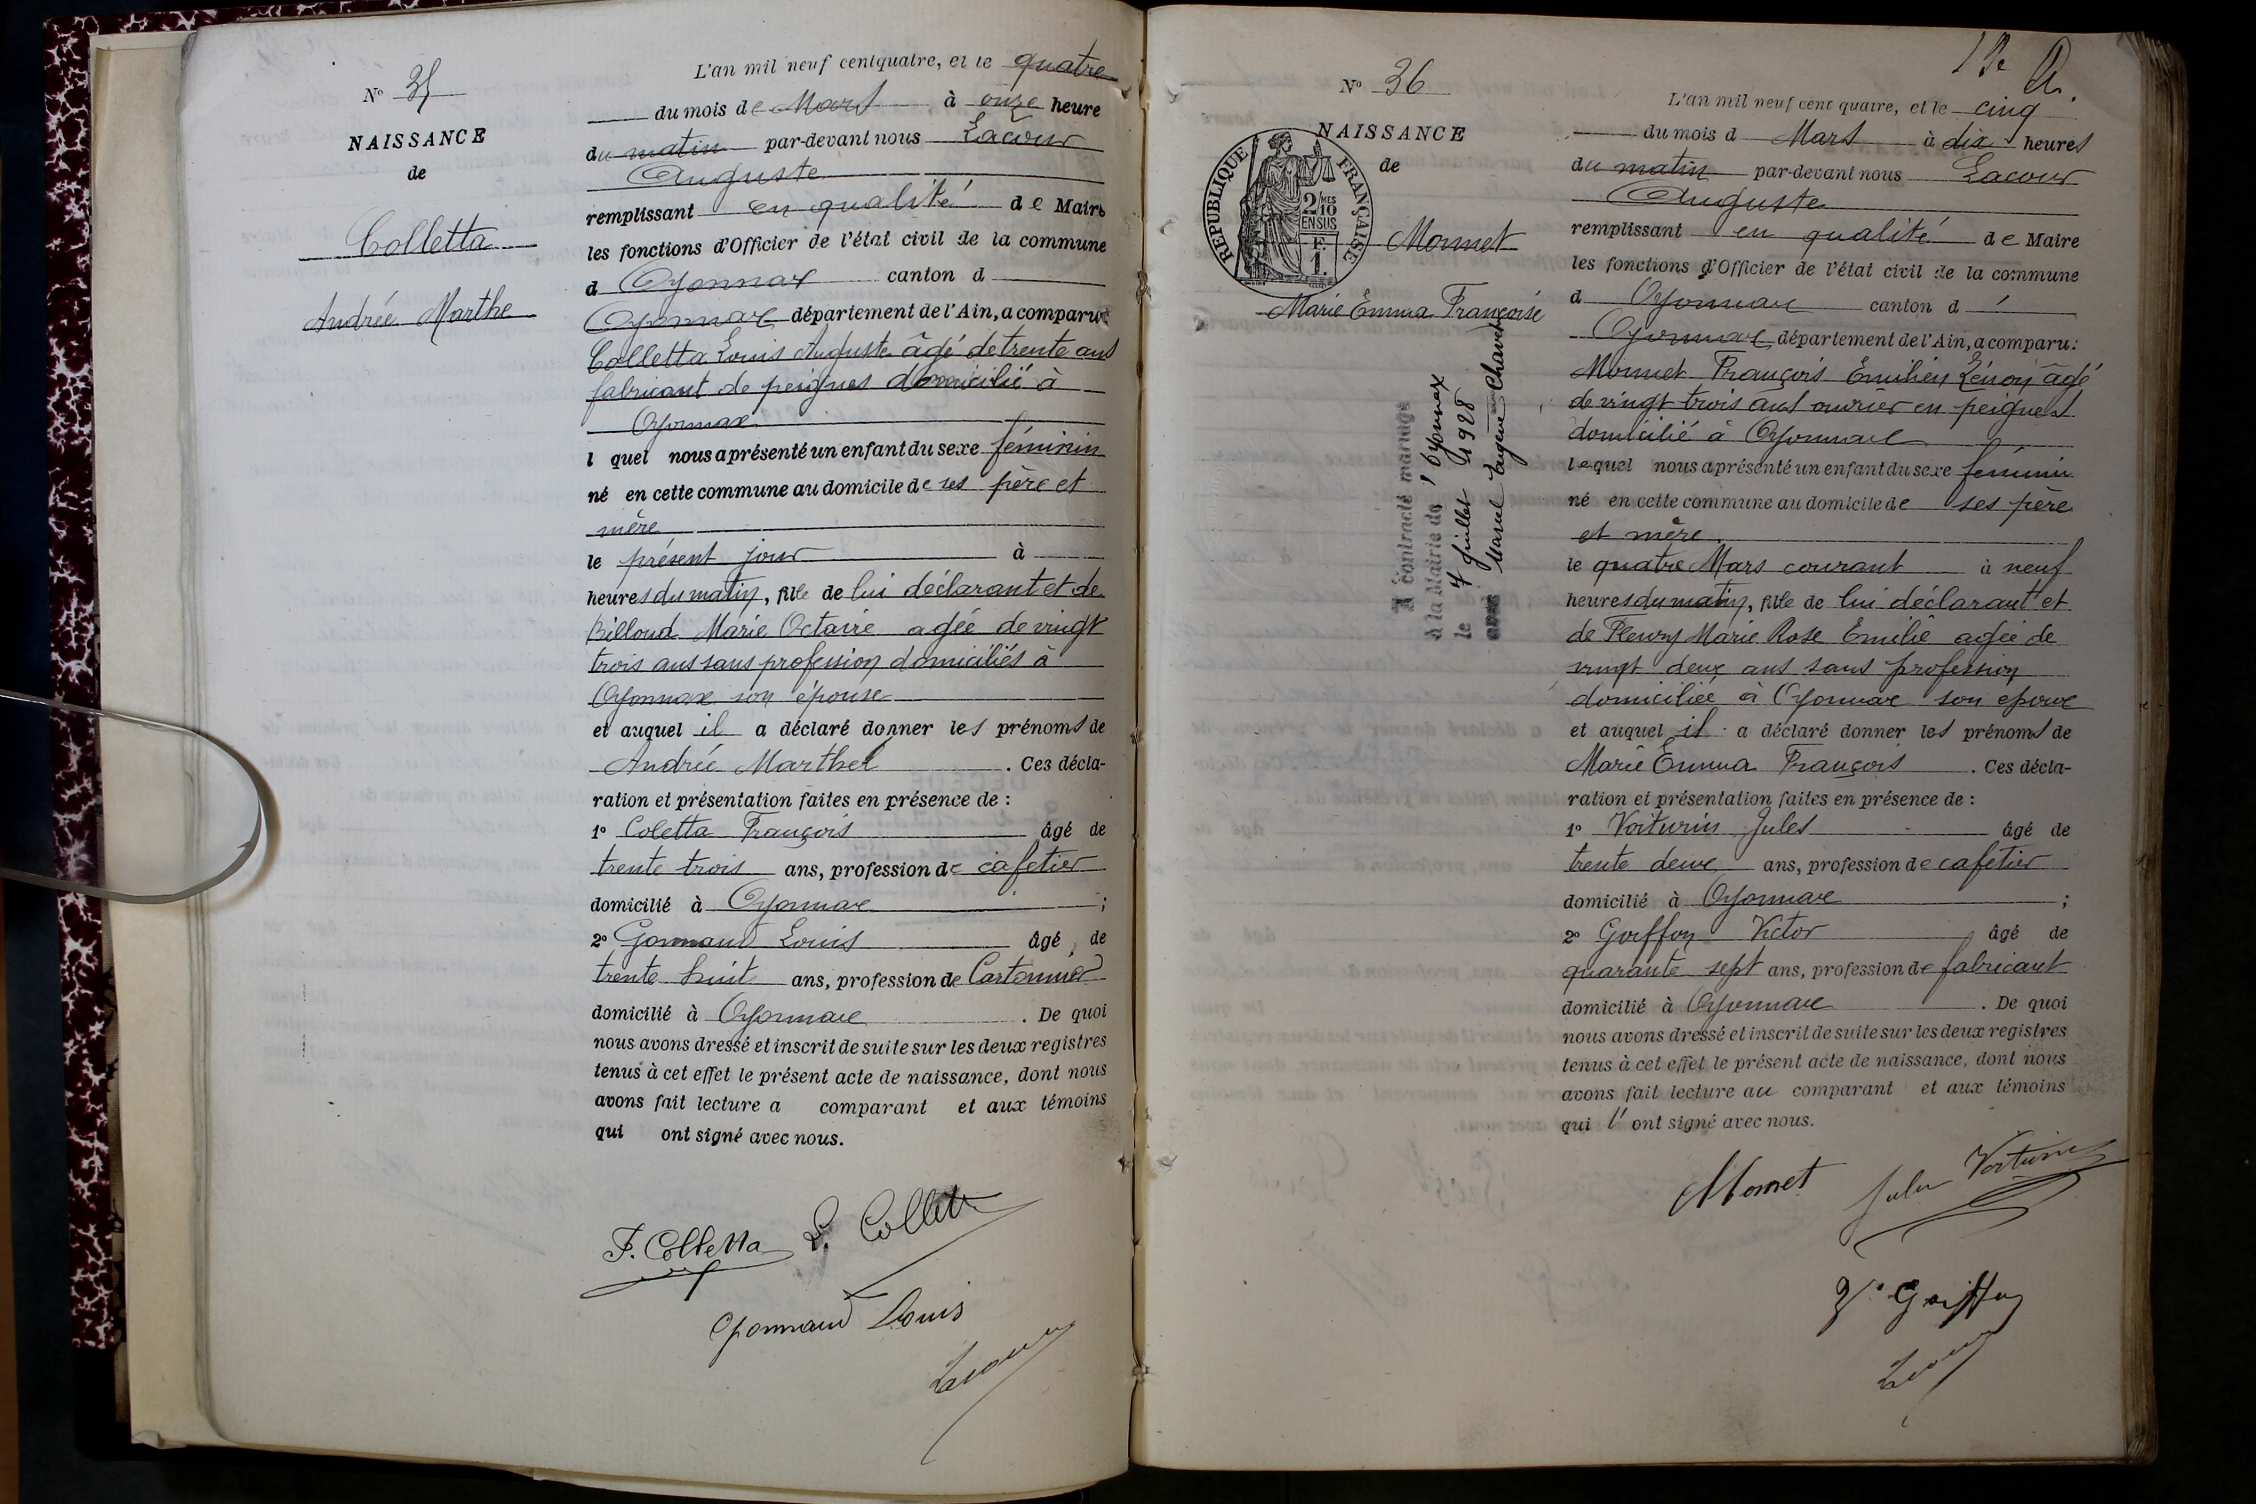 N° 35
NAISSANCE
de
Colletta
Andrée Marthe
L'an mil neuf cent quatre, et le quatre
du mois de Mars à onze heure
du matin par-devant nous Lacour
Auguste
remplissant en qualité de Maire
les fonctions d'Officier de l'état civil de la commune
d Oyonnax canton d
Oyonnax département de l'Ain, a comparu
Colletta Louis Auguste âgé de trente ans
fabricant de peignes domicilié à
Oyonnax
l quel nous a présenté un enfant du sexe féminin
né en cette commune au domicile de ses père et
mère
le présent jour à
heures du matin, fille de lui déclarant et de
Billoud Marie Octavie agée de vingt
trois ans sans profession domiciliés à
Oyonnax son épouse
et auquel il a déclaré donner les prénoms de
Andrée Marthe . Ces décla-
ration et présentation faites en présence de :
1° Coletta François âgé de
trente trois ans, profession de cafetier
domicilié à Oyonnax ;
2° Gonnand Louis âgé de
trente huit ans, profession de Cartonnier
domicilié à Oyonnax . De quoi
nous avons dressé et inscrit de suite sur les deux registres
tenus à cet effet le présent acte de naissance, dont nous
avons fait lecture a comparant et aux témoins
qui ont signé avec nous.
F. Colletta L. Colletta
Gonnand Louis
Lacour
13e
N° 36
NAISSANCE
de
RÉPUBLIQUE FRANÇAISE
2/10 MES
EN SUS
F.
1.
Monnet
Marie Emma Françoise
A contracté mariage
à la Mairie de Oyonnax
le 7 juillet 1928
avec Marcel Eugène Chavet
L'an mil neuf cent quatre, et le cinq
du mois d Mars à dix heures
du matin par-devant nous Lacour
Auguste
remplissant en qualité de Maire
les fonctions d'Officier de l'état civil de la commune
d Oyonnax canton d
Oyonnax département de l'Ain, a comparu :
Monnet François Emilien Zénon âgé
de vingt trois ans ouvrier en peignes
domicilié à Oyonnax
lequel nous a présenté un enfant du sexe féminin
né en cette commune au domicile de ses père
et mère.
le quatre Mars courant à neuf
heures du matin, fille de lui déclarant et
de Fleury Marie Rose Emilie agée de
vingt deux ans sans profession
domiciliée à Oyonnax son epouse
et auquel il a déclaré donner les prénoms de
Marie Emma François . Ces décla-
ration et présentation faites en présence de :
1° Voiturin Jules âgé de
trente deux ans, profession de cafetier
domicilié à Oyonnax ;
2° Goiffon Victor âgé de
quarante sept ans, profession de fabricant
domicilié à Oyonnax . De quoi
nous avons dressé et inscrit de suite sur les deux registres
tenus à cet effet le présent acte de naissance, dont nous
avons fait lecture au comparant et aux témoins
qui l' ont signé avec nous.
Monet Jules Voiturin
V. Goiffon
Lacour